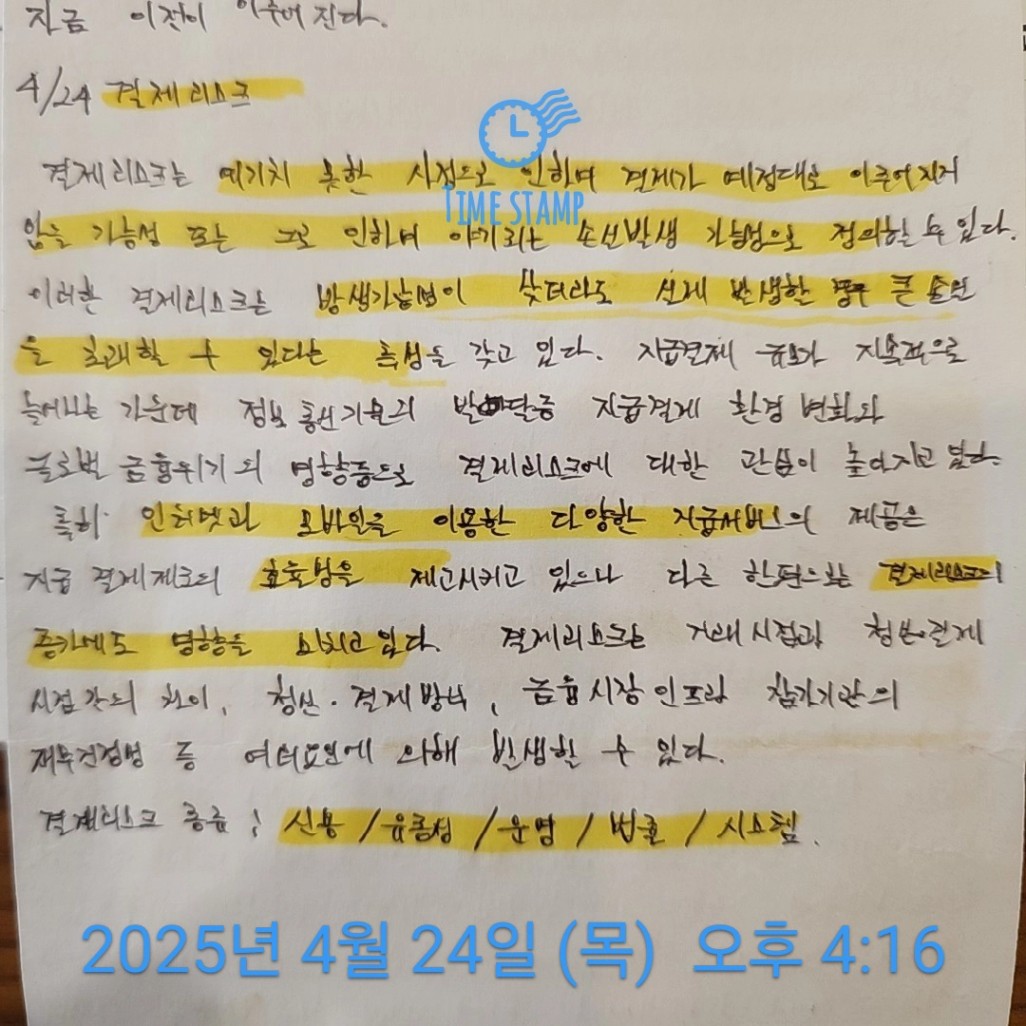 자금 이전이 이루어진다.
4/24 결제리스크
결제리스크는 예기치 못한 시점으로 인하여 결제가 예정대로 이루어지지
TIME STAMP
않을 가능성 또는 그로 인하여 야기되는 손실발생 가능성으로 정의할 수 있다.
이러한 결제리스크는 발생가능성이 낮더라도 실제 발생한 경우 큰 손실
을 초래할 수 있다는 특성을 갖고 있다. 지급결제 규모가 지속적으로
늘어나는 가운데 정보통신기술의 발달등 지급결제 환경 변화와
글로벌 금융위기의 영향등으로 결제리스크에 대한 관심이 높아지고 있다.
특히 인터넷과 모바일을 이용한 다양한 지급서비스의 제공은
지급결제제도의 효율성을 제고시키고 있으나 다른 한편으로는 결제리스크의
증가에도 영향을 미치고 있다. 결제리스크는 거래시점과 청산·결제
시점 간의 차이, 청산·결제 방식, 금융시장인프라 참가기관의
재무건전성 등 여러요인에 의해 발생할 수 있다.
결제리스크 종류 : 신용 / 유동성 / 운영 / 법률 / 시스템.
2025년 4월 24일 (목) 오후 4:16